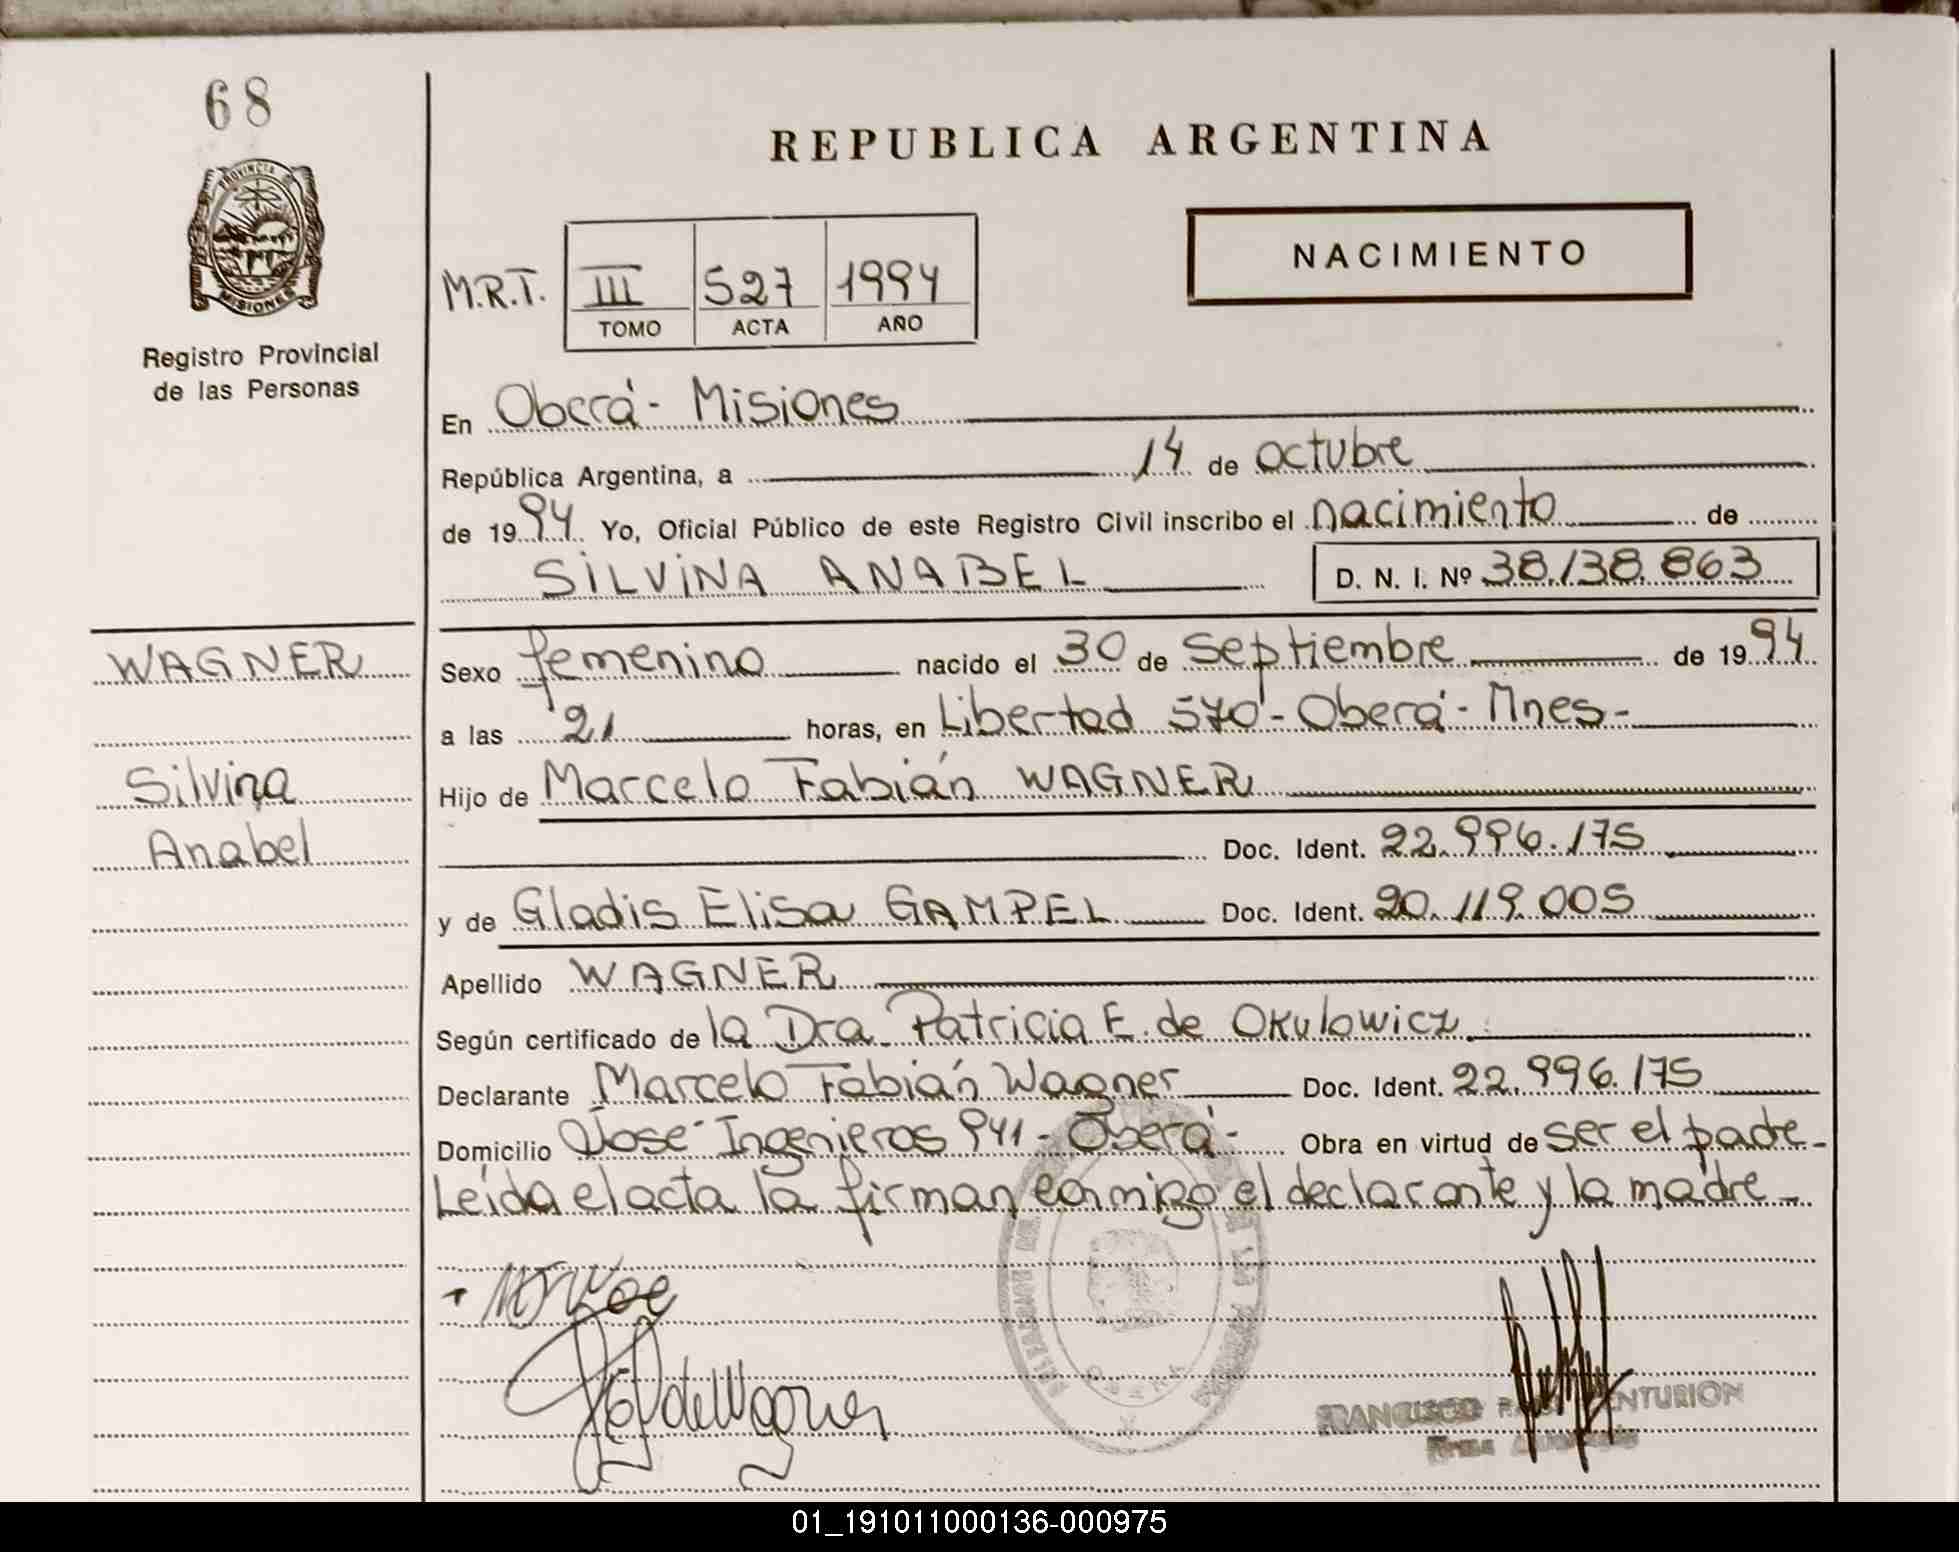 68
PROVINCIA
MISIONES
Registro Provincial
de las Personas
REPUBLICA ARGENTINA
NACIMIENTO
M.R.T. III 527 1994
TOMO ACTA AÑO
En Oberá - Misiones
República Argentina, a 14 de octubre
de 1994 Yo, Oficial Público de este Registro Civil inscribo el nacimiento de
SILVINA ANABEL D. N. I. Nº 38.138.863
WAGNER
Silvina
Anabel
Sexo femenino nacido el 30 de septiembre de 1994
a las 21 horas, en Libertad 570 - Oberá - Mnes -
Hijo de Marcelo Fabián WAGNER
Doc. Ident. 22.996.175
y de Gladis Elisa GAMPEL Doc. Ident. 20.119.005
Apellido WAGNER
Según certificado de la Dra. Patricia E. de Okulowicz
Declarante Marcelo Fabián Wagner Doc. Ident. 22.996.175
Domicilio José Ingenieros 941 - Oberá - Obra en virtud de ser el padre -
Leída el acta la firman conmigo el declarante y la madre -
de Wagner
FRANCISCO
01_191011000136-000975